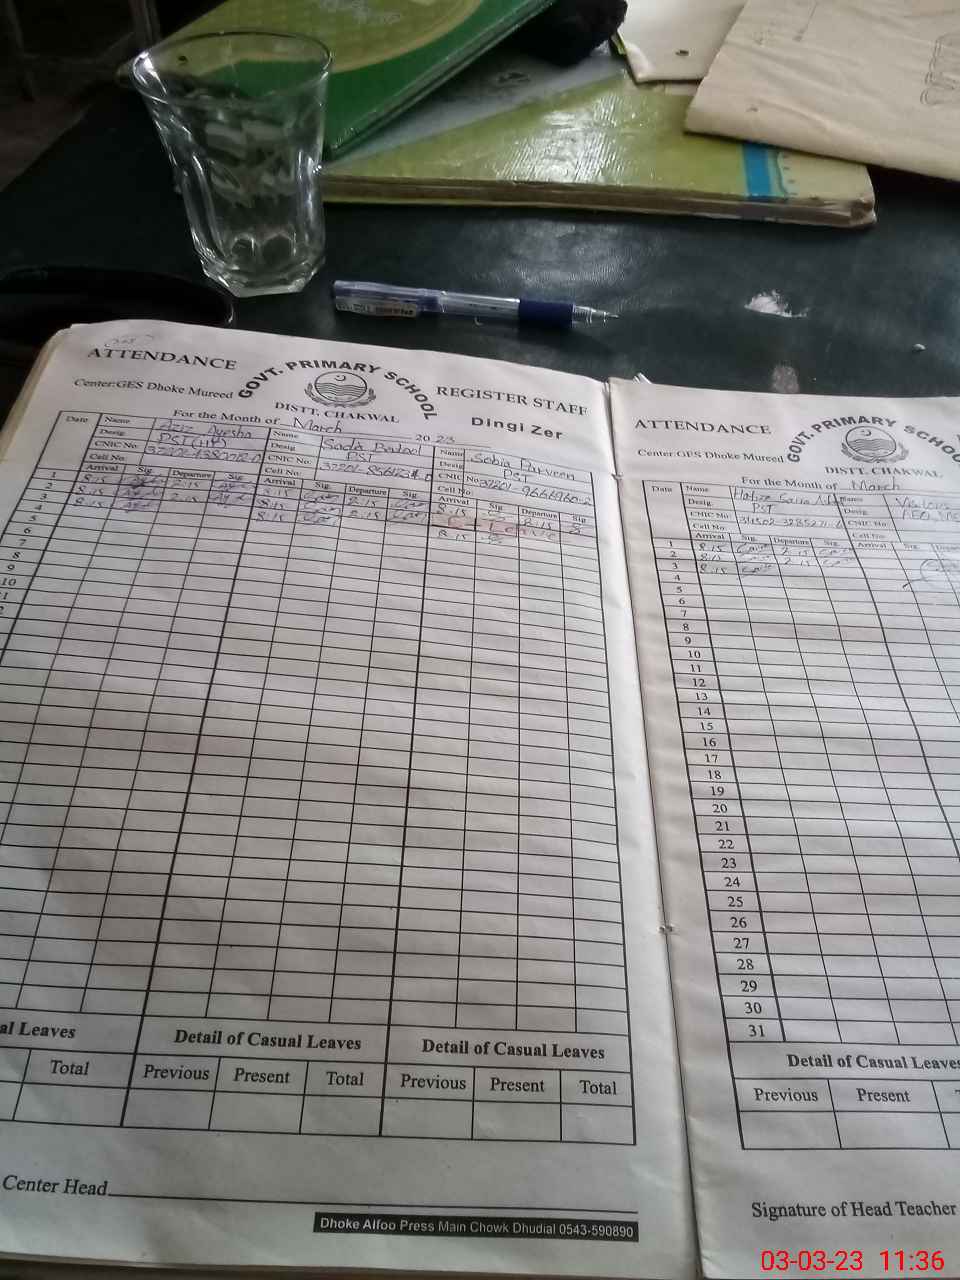 ATTENDANCE GOVT. PRIMARY SCHOOL REGISTER STAFF
Center:GES Dhoke Mureed DISTT. CHAKWAL Dingi Zer
For the Month of March 2023
Date Name Aziz Ayesha Name Sada Batool Name Sobia Parveen
Desig PST(HT) Desig PST Desig PST
CNIC No CNIC No CNIC No 37201-9666960-2
Cell No Cell No Cell No
Arrival Sig. Departure Sig Arrival Sig. Departure Sig. Arrival Sig. Departure Sig
1 8.15 2.15 8.15 2.15 8.15 2.15
2 8.15 2.15 8.15 2.15 C-Leave
3 8.15 8.15 8.15
4
5
6
7
8
9
10
al Leaves Detail of Casual Leaves Detail of Casual Leaves
Total Previous Present Total Previous Present Total
Center Head
Dhoke Alfoo Press Main Chowk Dhudial 0543-590890
ATTENDANCE GOVT. PRIMARY SCHOO
Center:GES Dhoke Mureed DISTT. CHAKWAL
For the Month of March
Date Name Hafiza Saira Name Visitors
Desig. PST Desig.
CNIC No CNIC No
Cell No Cell No
Arrival Sig. Departure Sig. Arrival Sig.
1 8.15 2.15
2 8.15 2.15
3 8.15
4
5
6
7
8
9
10
11
12
13
14
15
16
17
18
19
20
21
22
23
24
25
26
27
28
29
30
31
Detail of Casual Leaves
Previous Present
Signature of Head Teacher
03-03-23 11:36